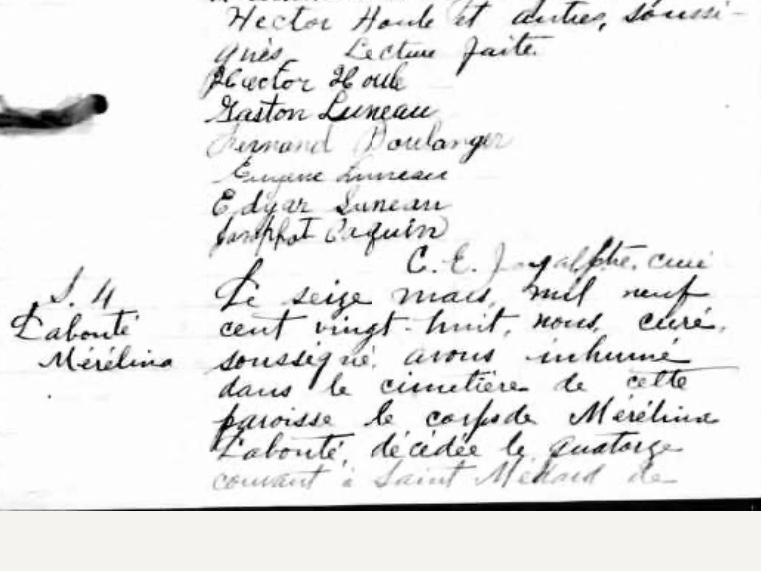 Hector Houle et autres, soussi-
gnés. Lecture faite.
Hector Houle
Gaston Luneau
Fernand Boulanger
Eugène Luneau
Edgar Luneau
Paquin
C. E. ptre, curé
S. 4
Labonté
Mérélina
Le seize mars, mil neuf
cent vingt-huit, nous, curé,
soussigné, avons inhumé
dans le cimetière de cette
paroisse le corps de Mérélina
Labonté, décédée le quatorze
courant à Saint Médard de